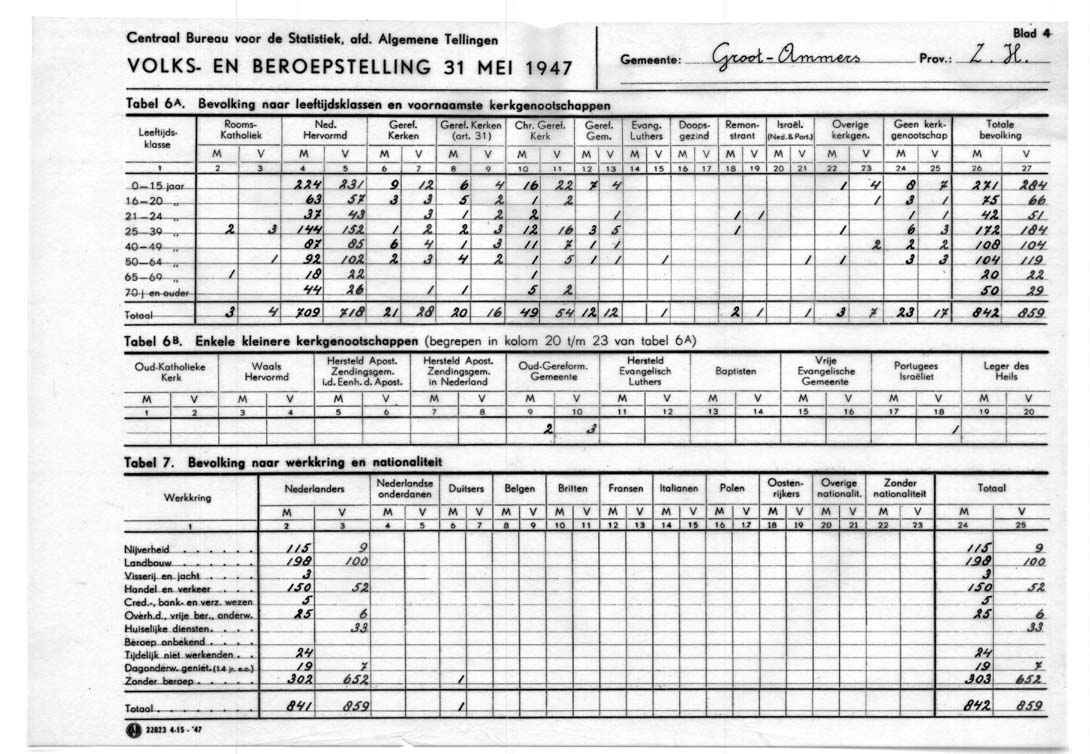 Centraal Bureau voor de Statistiek, afd. Algemene Tellingen
VOLKS- EN BEROEPSTELLING 31 MEI 1947
Blad 4
Gemeente: Groot-Ammers Prov.: Z. H.
Tabel 6A. Bevolking naar leeftijdsklassen en voornaamste kerkgenootschappen
Leeftijds- Rooms- Ned. Geref. Geref. Kerken Chr. Geref. Geref. Evang. Doops- Remon- Israël. Overige Geen kerk- Totale
klasse Katholiek Hervormd Kerken (art. 31) Kerk Gem. Luthers gezind strant (Ned. & Port.) kerkgen. genootschap bevolking
M V M V M V M V M V M V M V M V M V M V M V M V M V
1 2 3 4 5 6 7 8 9 10 11 12 13 14 15 16 17 18 19 20 21 22 23 24 25 26 27
0—15 jaar 224 231 9 12 6 4 16 22 7 4 1 4 8 7 271 284
16—20 „ 63 57 3 3 5 2 1 2 1 3 1 75 66
21—24 „ 37 43 3 1 2 2 1 1 1 1 1 42 51
25—39 „ 2 3 144 152 1 2 2 3 12 16 3 5 1 1 6 3 172 184
40—49 „ 87 85 6 4 1 3 11 7 1 1 2 2 2 108 104
50—64 „ 1 92 102 2 3 4 2 1 5 1 1 1 1 1 3 3 104 119
65—69 „ 1 18 22 1 20 22
70 j en ouder 44 26 1 1 5 2 50 29
Totaal 3 4 709 718 21 28 20 16 49 54 12 12 1 1 2 1 1 3 7 23 17 842 859
Tabel 6B. Enkele kleinere kerkgenootschappen (begrepen in kolom 20 t/m 23 van tabel 6A)
Oud-Katholieke Kerk Waals Hervormd Hersteld Apost. Zendingsgem. i.d. Eenh. d. Apost. Hersteld Apost. Zendingsgem. in Nederland Oud-Gereform. Gemeente Hersteld Evangelisch Luthers Baptisten Vrije Evangelische Gemeente Portugees Israëliet Leger des Heils
M V M V M V M V M V M V M V M V M V M V
1 2 3 4 5 6 7 8 9 10 11 12 13 14 15 16 17 18 19 20
2 3 1
Tabel 7. Bevolking naar werkkring en nationaliteit
Werkkring Nederlanders Nederlandse onderdanen Duitsers Belgen Britten Fransen Italianen Polen Oosten- rijkers Overige nationalit. Zonder nationaliteit Totaal
M V M V M V M V M V M V M V M V M V M V M V M V
1 2 3 4 5 6 7 8 9 10 11 12 13 14 15 16 17 18 19 20 21 22 23 24 25
Nijverheid . . . . . . 115 9 115 9
Landbouw . . . . . . 198 100 198 100
Visserij en jacht . . . . 3 3
Handel en verkeer . . . 150 52 150 52
Cred.-, bank- en verz. wezen 5 5
Overh.d., vrije ber., onderw. 25 6 25 6
Huiselijke diensten . . . . 33 33
Beroep onbekend . . . .
Tijdelijk niet werkenden . . 24 24
Dagonderw. geniet. (14 jr. e.o.) 19 7 19 7
Zonder beroep . . . . . 302 652 1 303 652
Totaal . . . . . . . . 841 859 1 842 859
22823 4-15 - '47